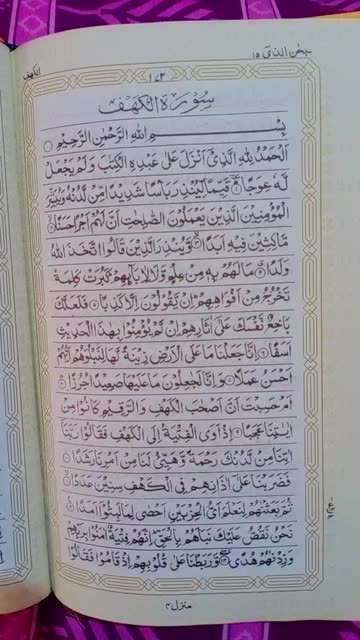 سبحن الذی ١٥
الكهف
١٧٢
سورة الكهف
بسم الله الرحمن الرحيم
الحمد لله الذي انزل على عبده الكتب ولم يجعل
له عوجا قيما لينذر باسا شديدا من لدنه ويبشر
المؤمنين الذين يعملون الصلحت ان لهم اجرا حسنا
ماكثين فيه ابدا وينذر الذين قالوا اتخذ الله
ولدا ما لهم به من علم ولا لابائهم كبرت كلمة
تخرج من افواههم ان يقولون الا كذبا فلعلك
باخع نفسك على اثارهم ان لم يؤمنوا بهذا الحديث
اسفا انا جعلنا ما على الارض زينة لها لنبلوهم ايهم
احسن عملا وانا لجعلون ما عليها صعيدا جرزا
ام حسبت ان اصحب الكهف والرقيم كانوا من
ايتنا عجبا اذ اوى الفتية الى الكهف فقالوا ربنا
اتنا من لدنك رحمة وهيئ لنا من امرنا رشدا
فضربنا على اذانهم في الكهف سنين عددا
ثم بعثنهم لنعلم اي الحزبين احصى لما لبثوا امدا
نحن نقص عليك نباهم بالحق انهم فتية امنوا بربهم
وزدنهم هدى وربطنا على قلوبهم اذ قاموا فقالوا
منزل ٤